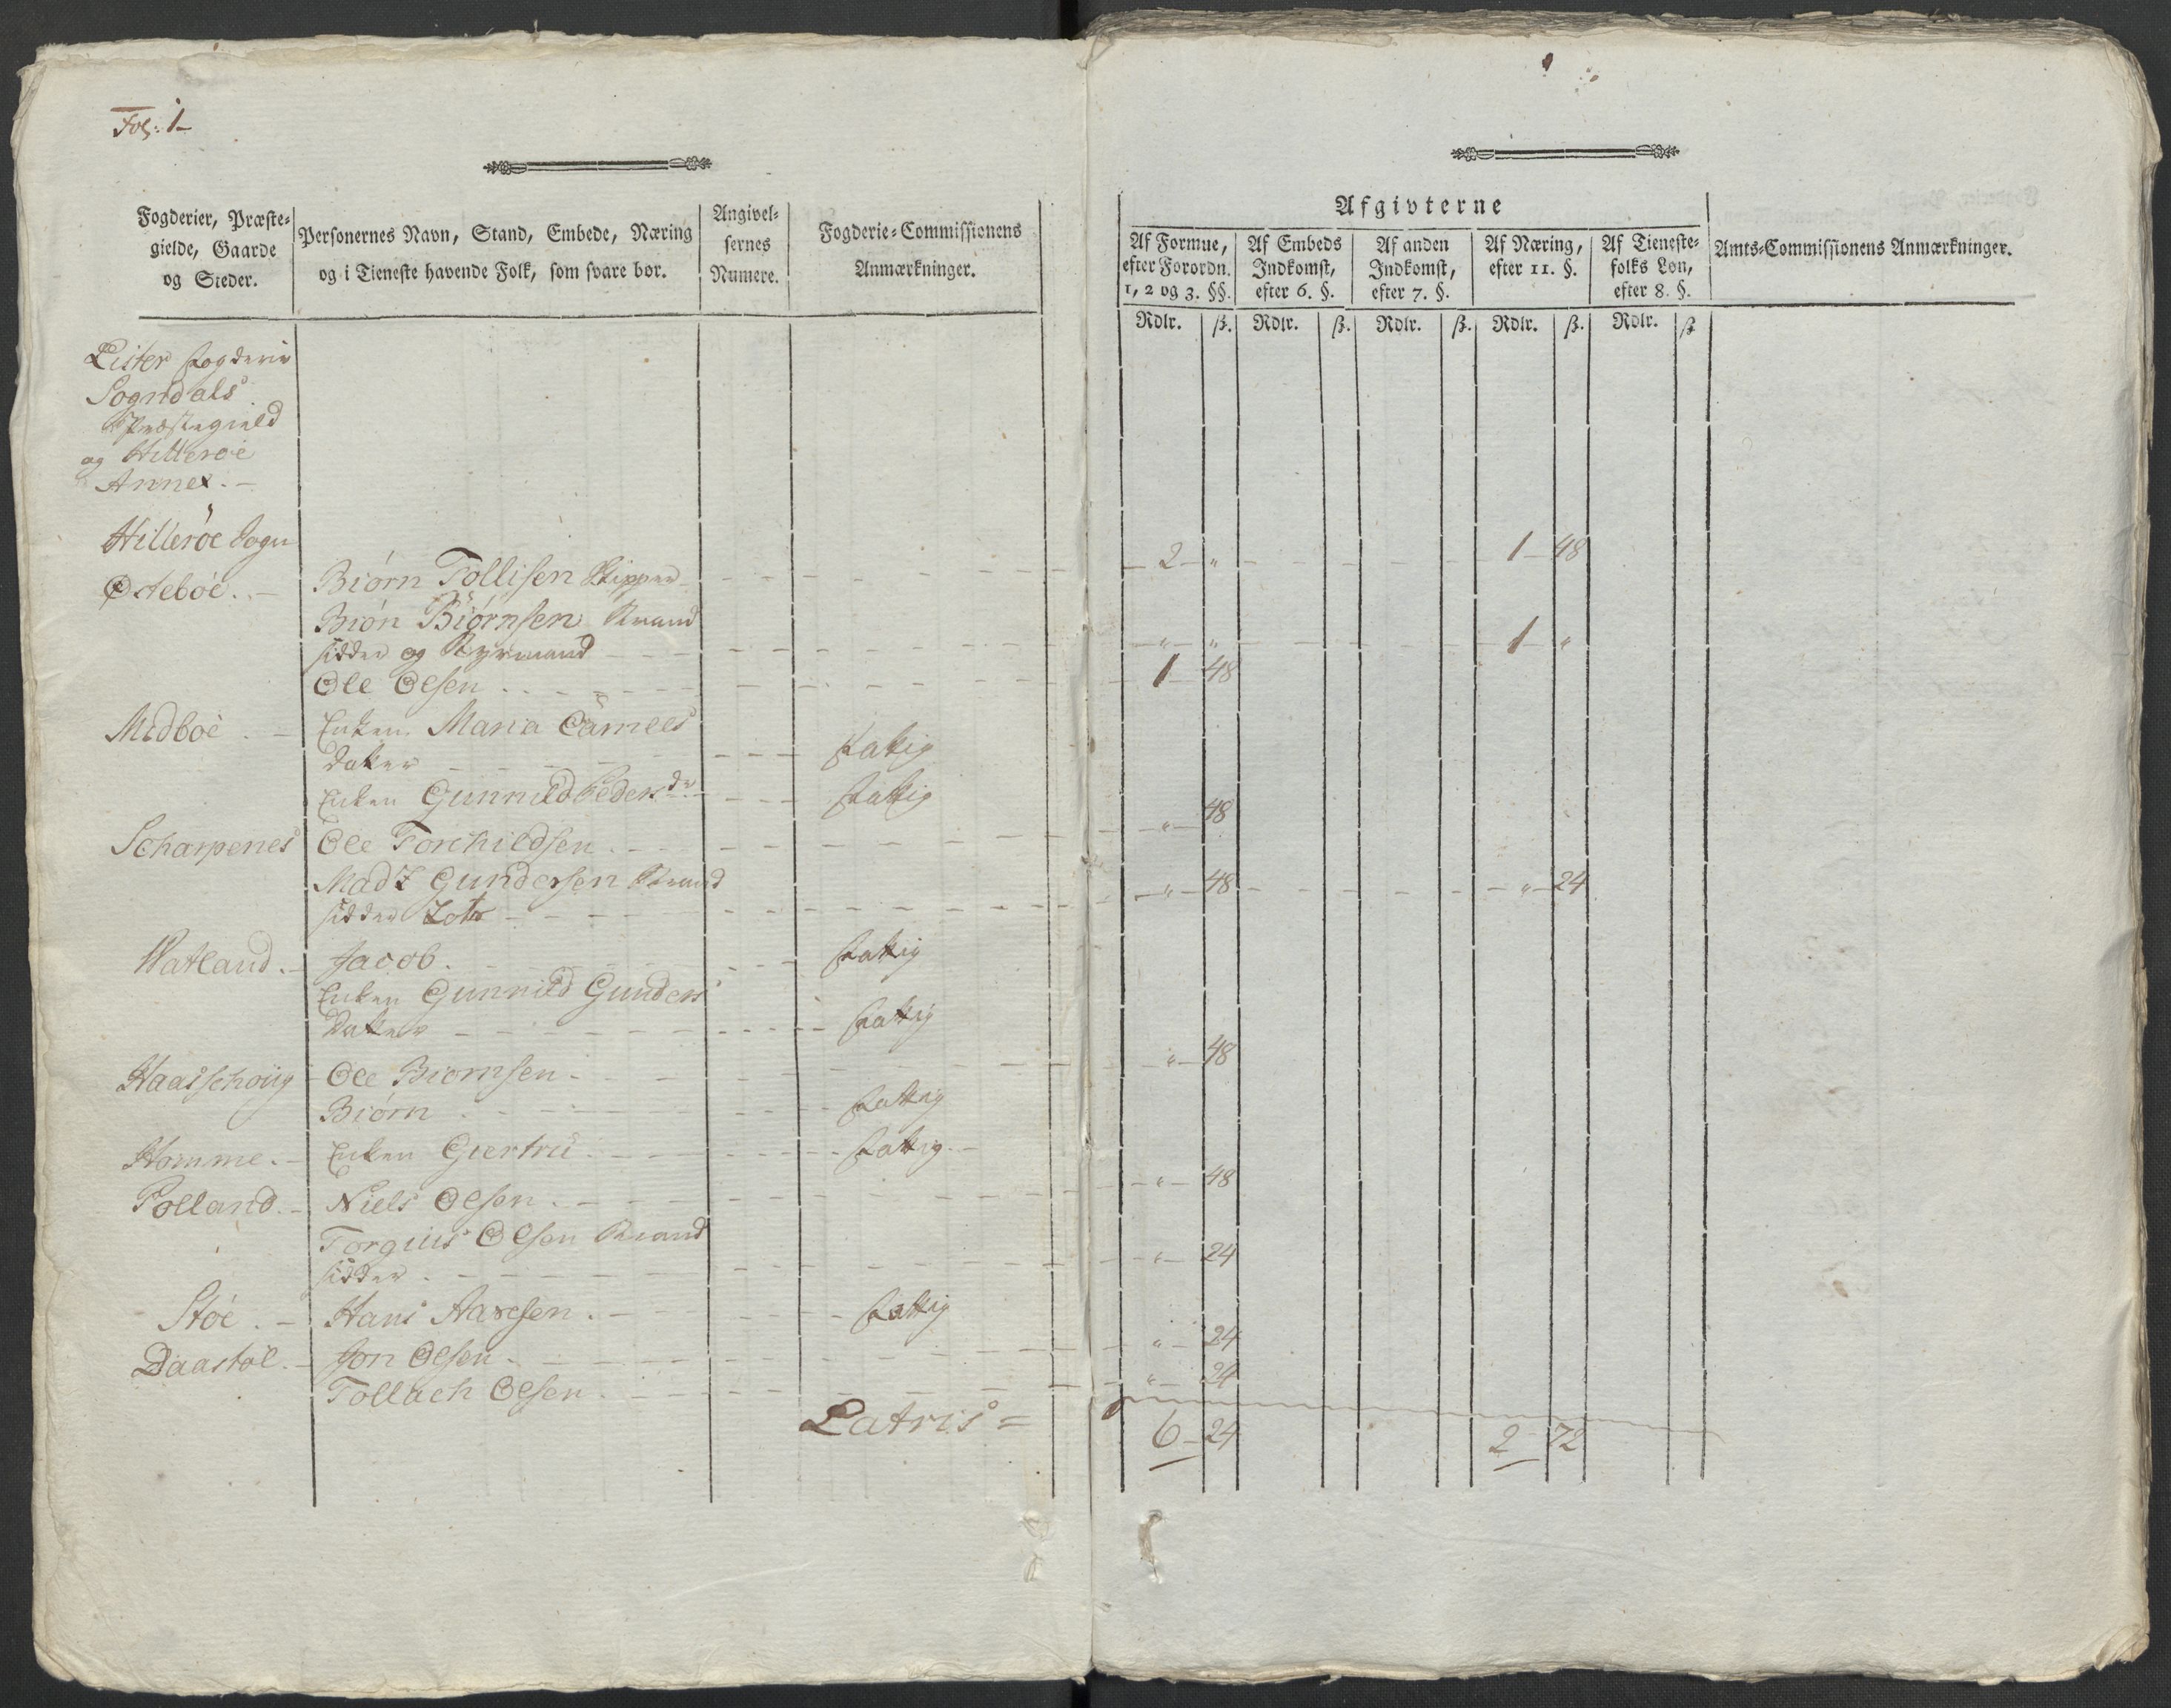 Fol: 1-
Fogderier, Præste-
gielde, Gaarde
og Steder.
Personernes Navn, Stand, Embede, Næring
og i Tieneste havende Folk, som svare bør.
Angivel-
sernes
Numere.
Fogderie-Commissionens
Anmærkninger.
Afgivterne
Af Formue,
efter Forordn.
1, 2 og 3. §§.
Af Embeds
Indkomst,
efter 6. §.
Af anden
Indkomst,
efter 7. §.
Af Næring,
efter 11. §.
Af Tieneste-
folks Løn,
efter 8. §.
Amts-Commissionens Anmærkninger.
Rdlr. ß. Rdlr. ß. Rdlr. ß. Rdlr. ß. Rdlr. ß
Lister Fogderie
Sogndals
Præstegield
og Hitterøe
Annex. -
Hitterøe Sogn
Østebøe. - Biørn Tollisen Skipper - 2 - " - 1 - 48
Biøn Biørnsen Strand
sidder og Styrmand - " - " - 1 - "
Ole Olsen - 1 - 48
Midbøe - Enken Maria
datter - Fattig
Enken Gunnild Peders dr - Fattig
Scharpenes Ole Torchildsen - " - 48
Madz Gundersen Strand
sidder - " - 48 - " - 24
Watland - Jacob. - Fattig
Enken Gunnild Gunders
datter - Fattig
Haasschoug - Ole Biørnsen - " - 48
Biørn - Fattig
Homme. - Enken Giertru - Fattig -
Polland - Niels Olsen - " - 48
Torgius Olsen Strand
sidder - " - 24
Støe - Hans Aasesen - Fattig
Daastøl - Jon Olsen - " - 24
Tollach Olsen - " - 24
Latris = 6 - 24 2 - 72